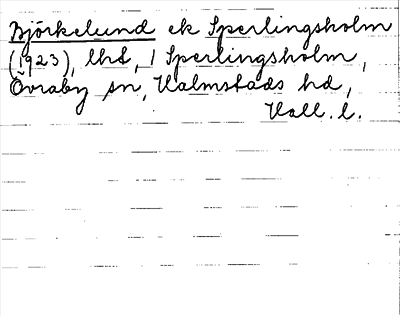 Björkelund ek Sperlingsholm
(1923), lht, 1 Sperlingsholm,
Övraby sn, Halmstads hd,
Hall. l.